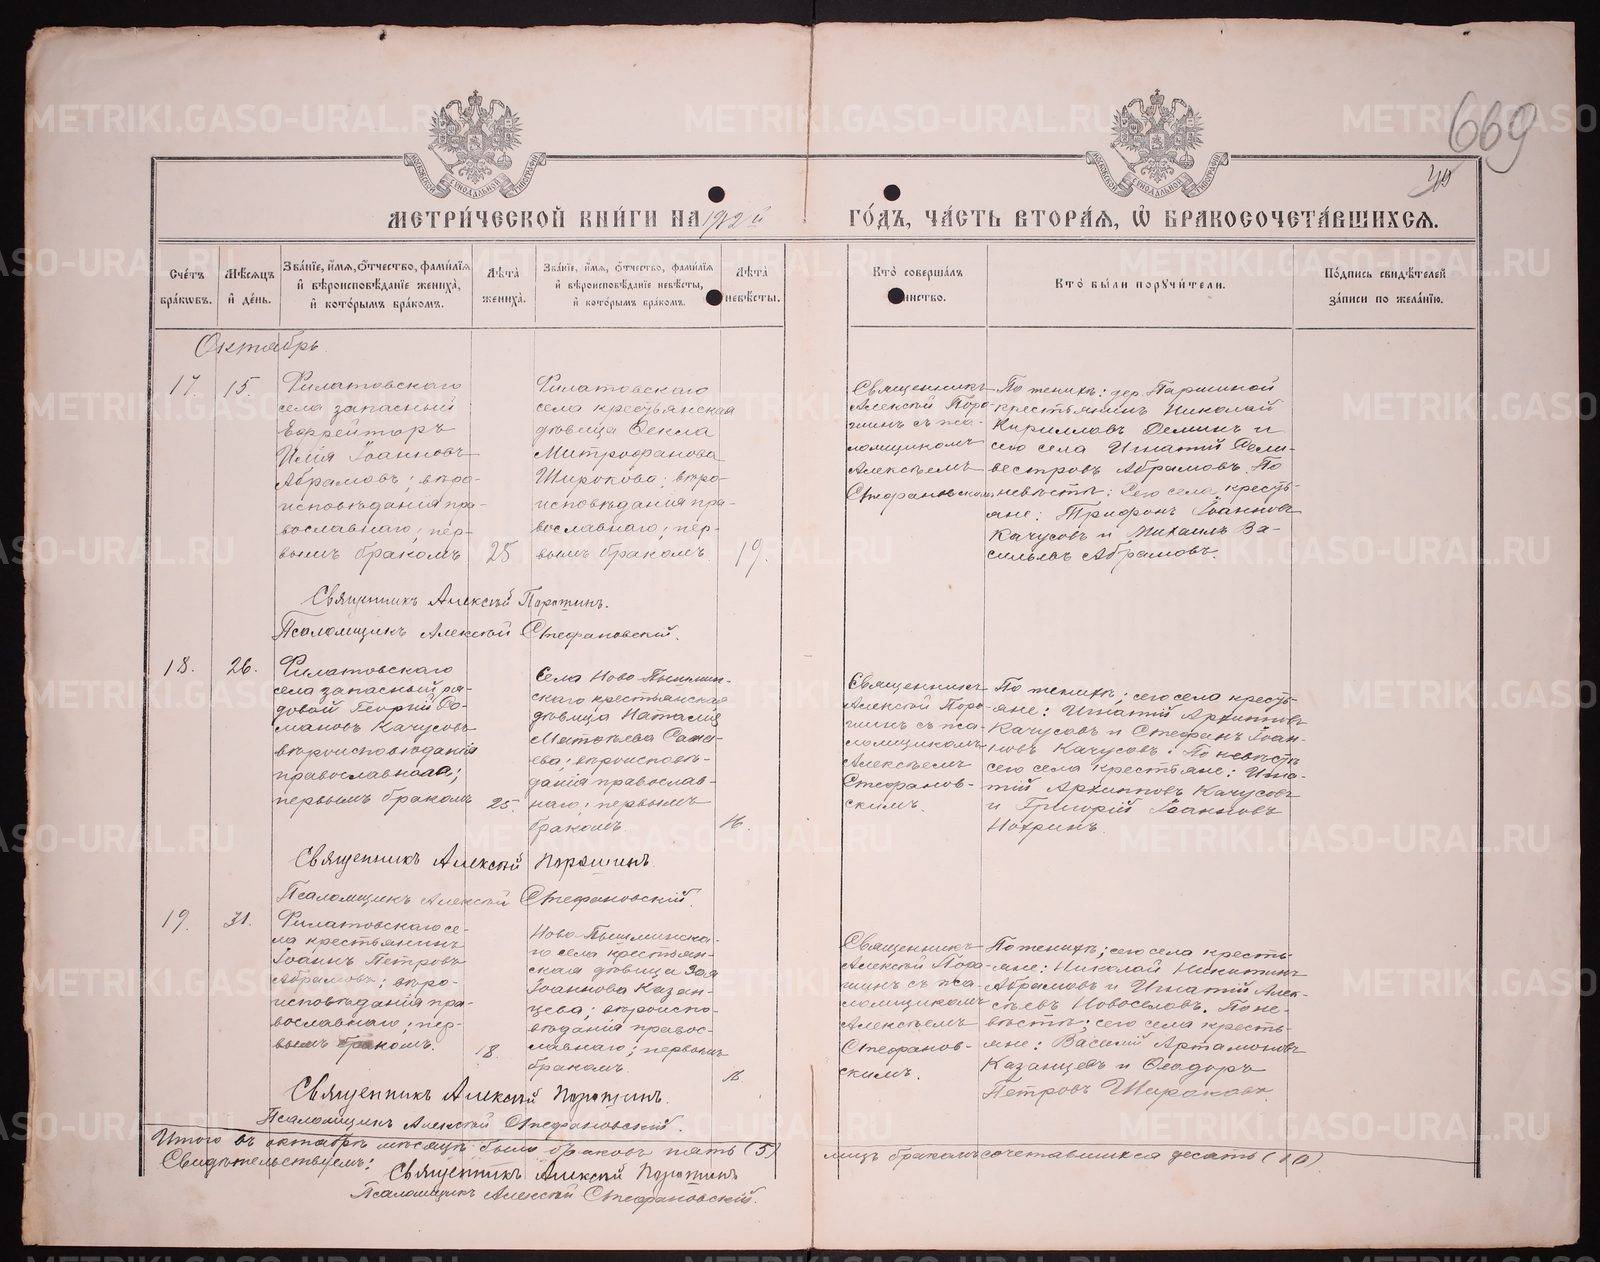 669
40
МЕТРИ́ЧЕСКОЙ КНИ́ГИ НА 1912 й ГО́ДЪ, ЧА́СТЬ ВТОРА́Я, Ѡ БРАКОСОЧЕТА́ВШИХСЯ.
Сче́тъ бра́кѡвъ.
Мѣ́сяцъ и́ де́нь.
Зва́нїе, и́мя, ѻ́тчество, фами́лїя и́ вѣроисповѣ́данїе жениха̀, и́ кото́рымъ бра́комъ.
Лѣ́та жениха̀.
Зва́нїе, и́мя, ѻ́тчество, фами́лїя и́ вѣроисповѣ́данїе невѣ́сты, и́ кото́рымъ бра́комъ.
Лѣ́та невѣ́сты.
Кто̀ соверша́лъ
инство.
Кто̀ бы́ли порꙋчи́тели.
По́дпись свидѣ́телей за́писи по жела́нїю.
Октябрь.
17.
15.
Филатовскаго
села запасный
Ефрейторъ
Илія Іоанновъ
Абрамовъ; вѣро-
исповѣданія пра-
вославнаго; пер-
вымъ бракомъ.
25
Филатовскаго
села крестьянская
дѣвица Ѳекла
Митрофанова
Широкова; вѣро-
исповѣданія пра-
вославнаго; пер-
вымъ бракомъ.
19.
Священникъ
Алексѣй Поро-
шинъ съ пса-
ломщикомъ
Алексѣемъ
Стефановским
По женихѣ: дер. Паршиной
крестьянинъ Николай
Кирилловъ Деминъ и
сего села Игнатій Сели-
вестровъ Абрамовъ. По
невѣстѣ: Сего села кресть-
яне: Трифонъ Іоанновъ
Качусовъ и Михаилъ Ва-
сильевъ Абрамовъ.
Священникъ Алексѣй Порошинъ.
Псаломщикъ Алексѣй Стефановскій.
18.
26.
Филатовскаго
села запасный ря-
довой Георгій Ро-
мановъ Качусовъ
вѣроисповѣданія
православнаго;
первымъ бракомъ
25.
Села Ново-Пышмин-
скаго крестьянская
дѣвица Наталія
Матѳѣева
ева; вѣроисповѣ-
данія православ-
наго; первымъ
бракомъ.
Священникъ
Алексѣй Поро-
шинъ съ пса-
ломщикомъ
Алексѣемъ
Стефанов-
скимъ.
По женихѣ; сего села кресть-
яне: Игнатій Архиповъ
Качусовъ и Стефанъ Іоан-
новъ Качусовъ. По невѣстѣ
сего села крестьяне: Игна-
тій Архиповъ Качусовъ
и Григорій Іоанновъ
Нохринъ.
Священникъ Алексѣй Порошинъ.
Псаломщикъ Алексѣй Стефановскій.
19.
31.
Филатовскаго се-
ла крестьянинъ
Іоаннъ Петровъ
Абрамовъ; вѣро-
исповѣданія пра-
вославнаго; пер-
вымъ бракомъ.
18.
Ново-Пышминска-
го села крестьян-
ская дѣвица Зоя
Іоаннова Казан-
цева; вѣроиспо-
вѣданія правос-
лавнаго; первымъ
бракомъ.
Священникъ
Алексѣй Поро-
шинъ съ пса-
ломщикомъ
Алексѣемъ
Стефанов-
скимъ.
По женихѣ; сего села кресть-
яне: Николай Никитинъ
Абрамовъ и Игнатій Алек-
сѣевъ Новоселовъ. По не-
вѣстѣ; сего села кресть-
яне: Василій Артамоновъ
Казанцевъ и Ѳеодоръ
Петровъ Широковъ.
Священникъ Алексѣй Порошинъ.
Псаломщикъ Алексѣй Стефановскій.
Итого въ октябрѣ мѣсяцѣ было браковъ пять (5) лицъ бракомъ сочетавшихся десять (10)
Свидѣтельствуемъ:
Священникъ Алексѣй Порошинъ
Псаломщикъ Алексѣй Стефановскій.
METRIKI.GASO-URAL.RU